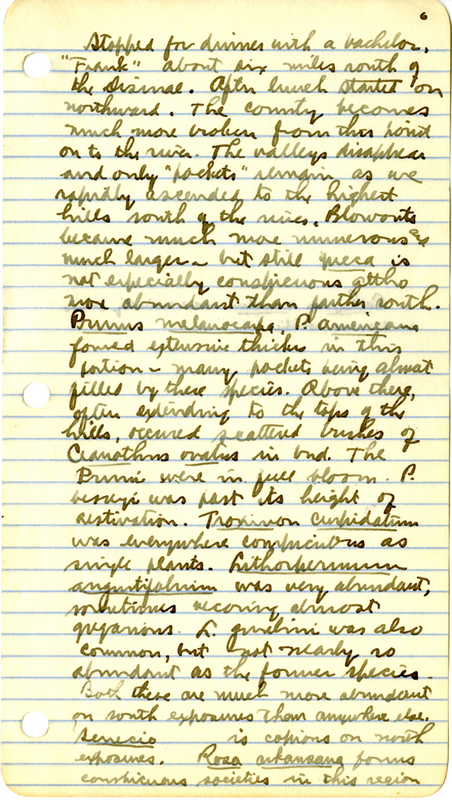 6
Stopped for dinner with a bachelor,
"Frank" about six miles south of
the Dismal. After lunch started on
northward. The country becomes
much more broken from this point
on to the river. The valleys disappear
and only "pockets" remain as we
rapidly ascended to the highest
hills south of the river. Blowouts
became much more numerous and
much larger - but still yucca is
not especially conspicuous altho
more abundant than farther south.
Prunus melanocarpa, P. americana
formed extensive thickets in this
portion - many pockets being almost
filled by these species. Above these,
often extending to the tops of the
hills, occured scattered bushes of
Ceanothus ovatus in bud. The
Pruni were in full bloom. P.
besseyi was past its height of
aestivation. Troximon cuspidatum
was everywhere conspicuous as
single plants. Lithospermum
angustifolium was very abundant,
sometimes becoming almost
gregarious. L. gmelini was also
common, but not nearly so
abundant as the former species.
Both these are much more abundant
on south exposures than anywhere else.
Senecio is copious on north
exposures. Rosa arkansana forms
conspicuous societies in this region